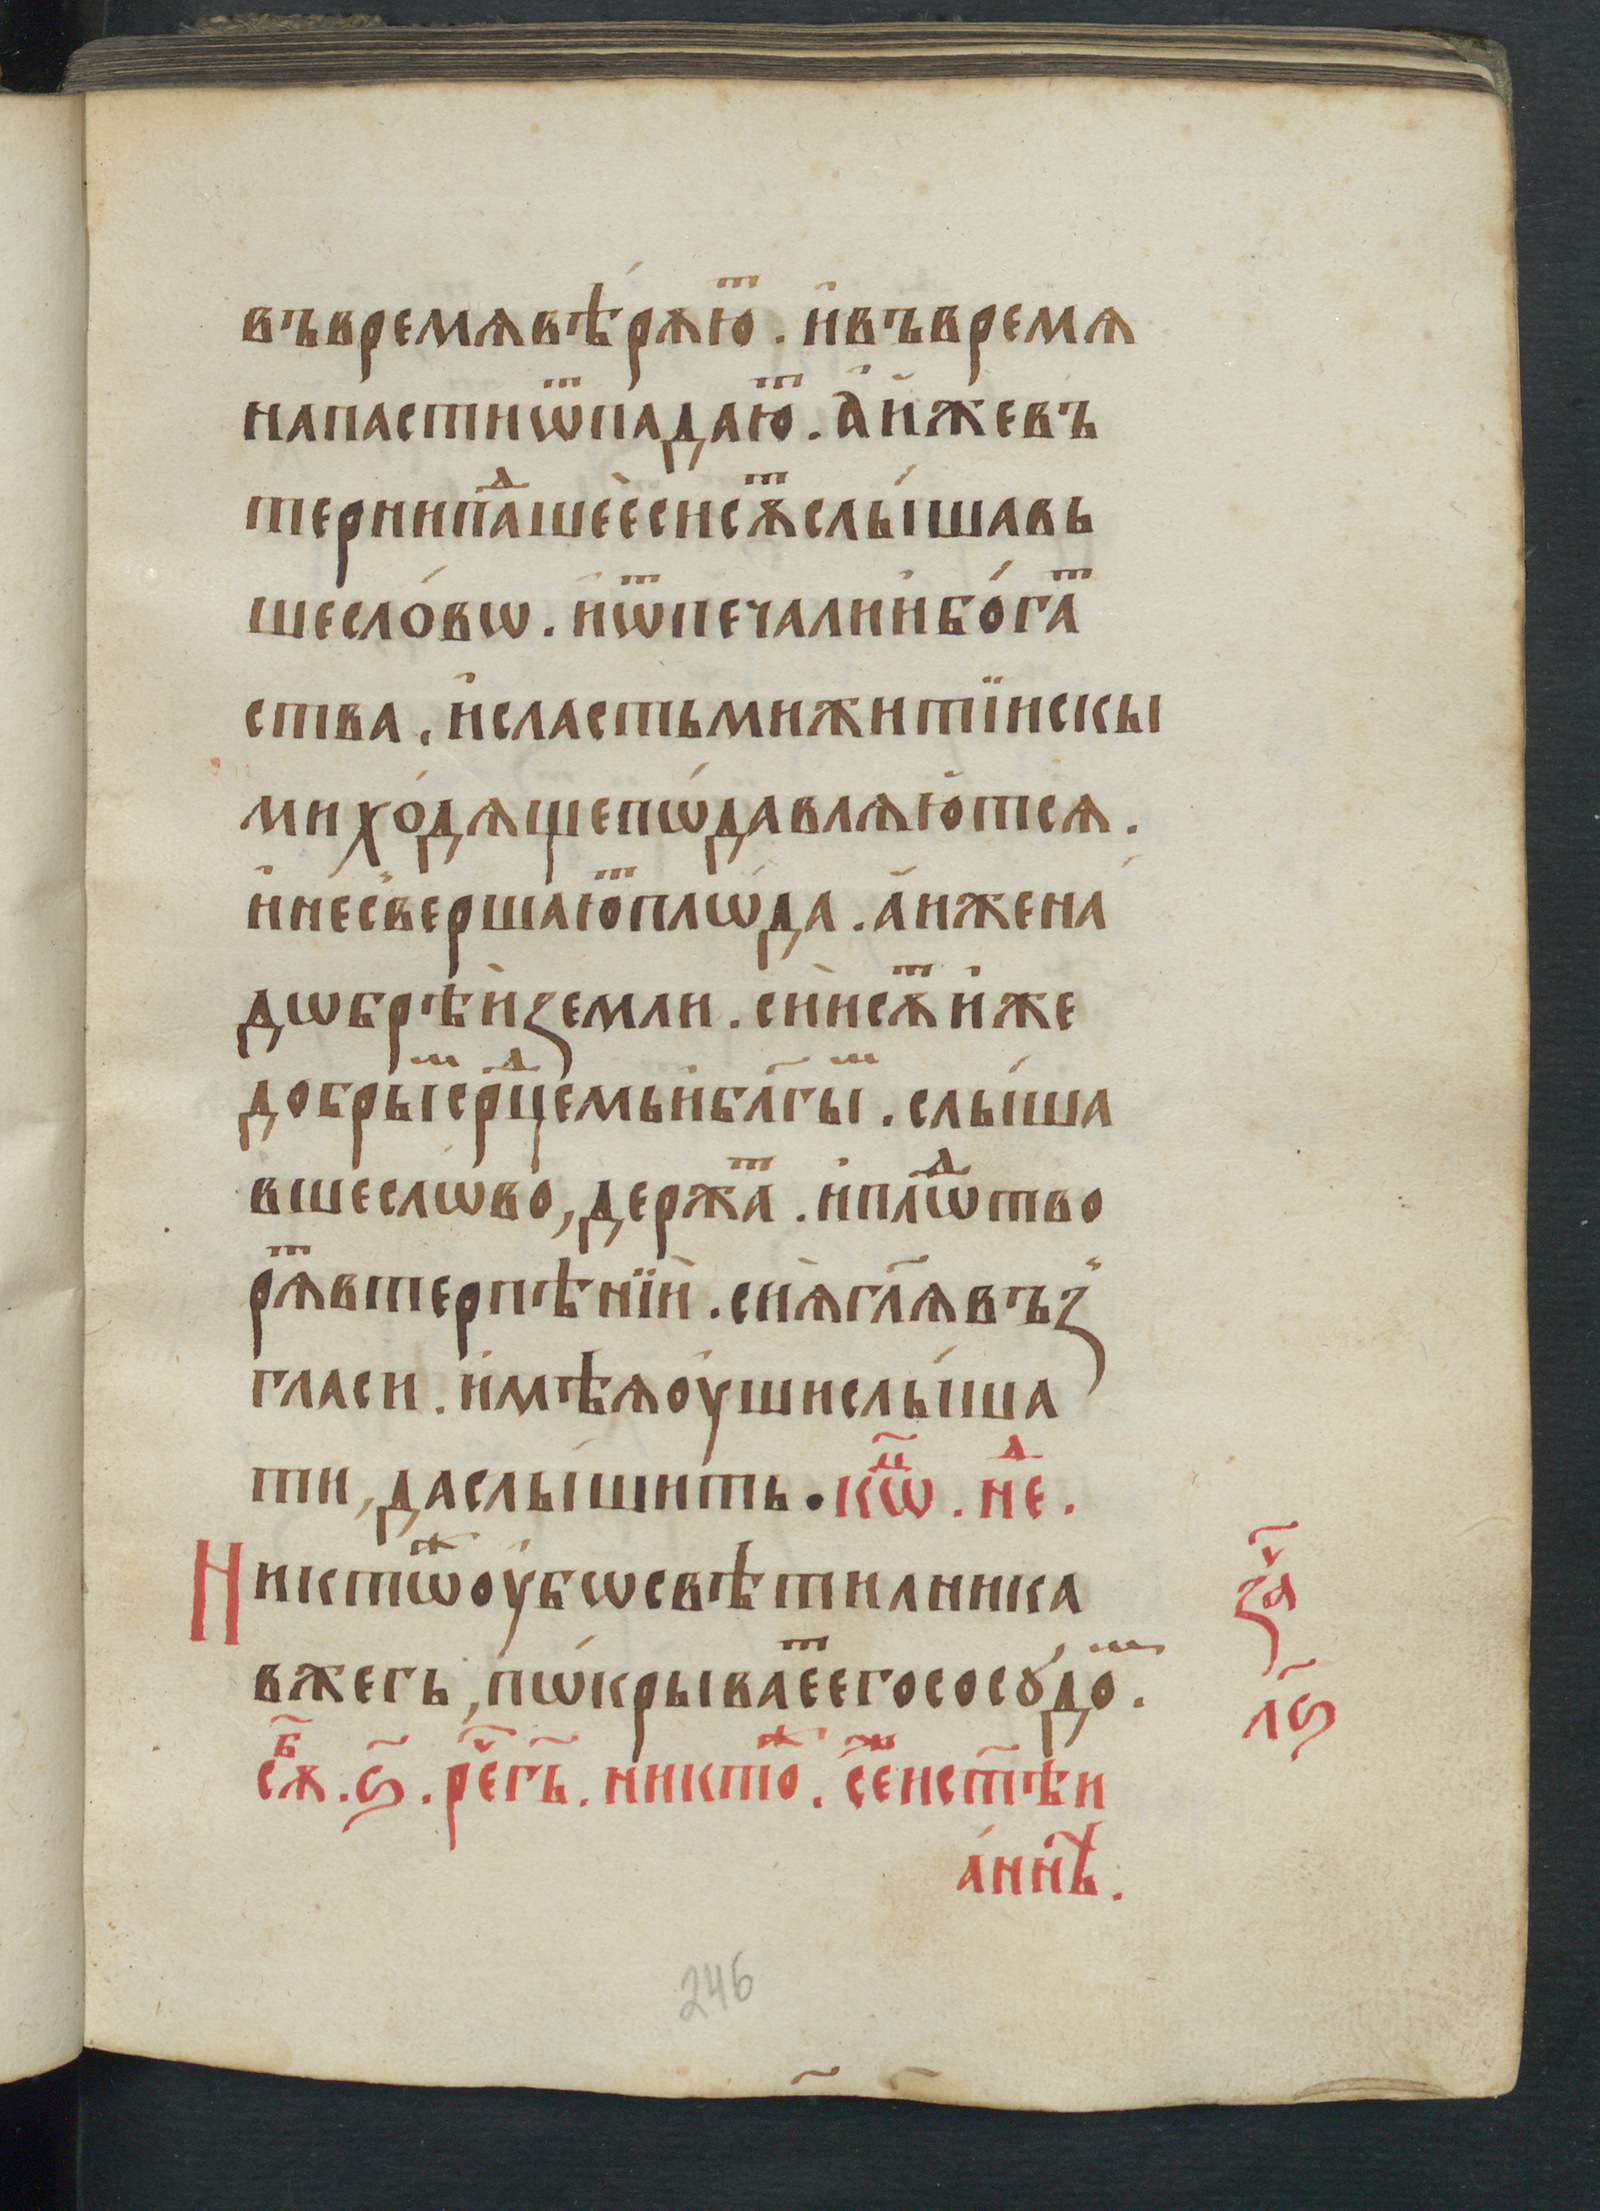 въвремѧвѣ́рѧю҇ⷮ. и҆въвремѧ
напастиѿпадаю҇ⷮ. А҆и҆жевъ
терниипа҇ⷣшеѐсисѫ҇ⷮслы́шавь
шесло́вѡ. и҆ѿпечалии҆бо́га҇ⷮ
ства. и҆сластьмижитїискы
михо́дѧщепѡ́давлѧю҆тсѧ.
и҆не́свершаю҇ⷮплѡ́да. а҆ижена́
дѡбрѣѝземли. сиѝсѫ҇ⷮи҆же
добры҇ⷨср҇ⷣцемьи҆бл҃гы҇ⷨ. слы́ша
вшеслѡ́во, держа҇ⷮ. и҆плѡ҇ⷣтво
рѧ҇ⷮвтерпѣнїѝ. сиѧ̀гл҃ѧвъз
гласи. и҆мѣѧоу҆шислы́ша
ти, даслы́шить. кѡ҃ⷰ. не҇ⷣ.
Никтѡ҇ⷤоу҆бѡсвѣтилника
вжегь, пѡ́крывае҇ⷮегососꙋ́до҇ⷨ.
сѫ҃ⷠ. ѕ҃. ре҃ⷱгь҃. никто҇ⷤ. се҃ⷤнст҃ѣи
а́ннѣ.
за҃ⷱ
лѕ҃
246